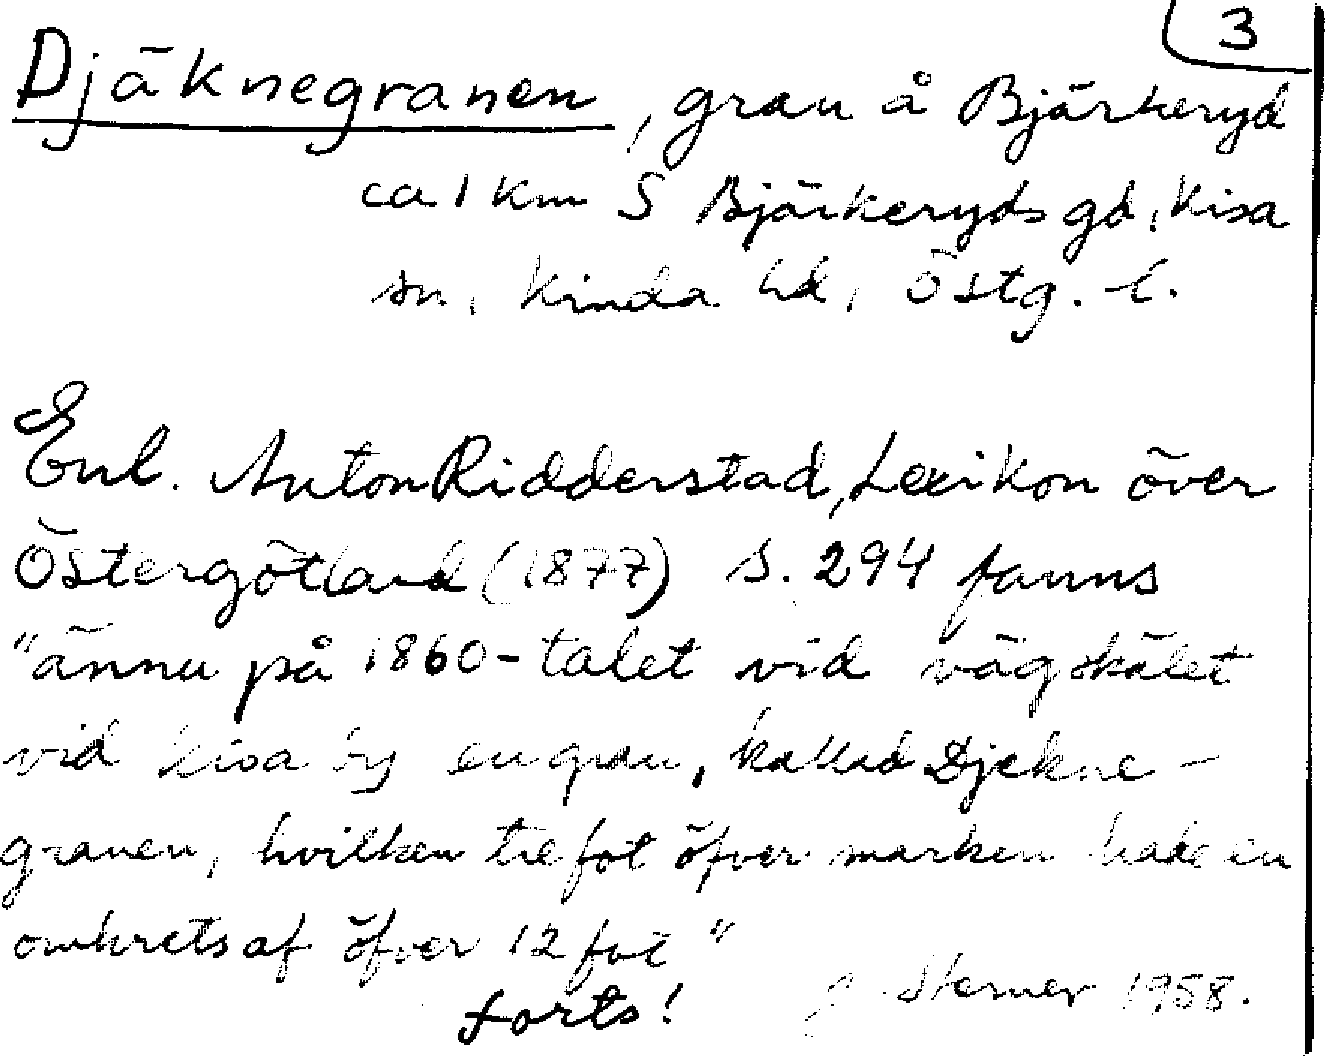 3
Djäknegranen, gran å Bjärkeryd
ca 1 km S Bjärkeryds gd, Kisa
sn, Kinda hd, Östg. l.
Enl. Anton Ridderstad, Lexikon över
Östergötland (1877) s. 294 fanns
"ännu på 1860-talet vid vägskälet
vid Kisa by en gran, kallad Djekne-
granen, hvilken tre fot öfver marken hade en
omkrets af öfver 12 fot"
forts! J. Sterner 1958.